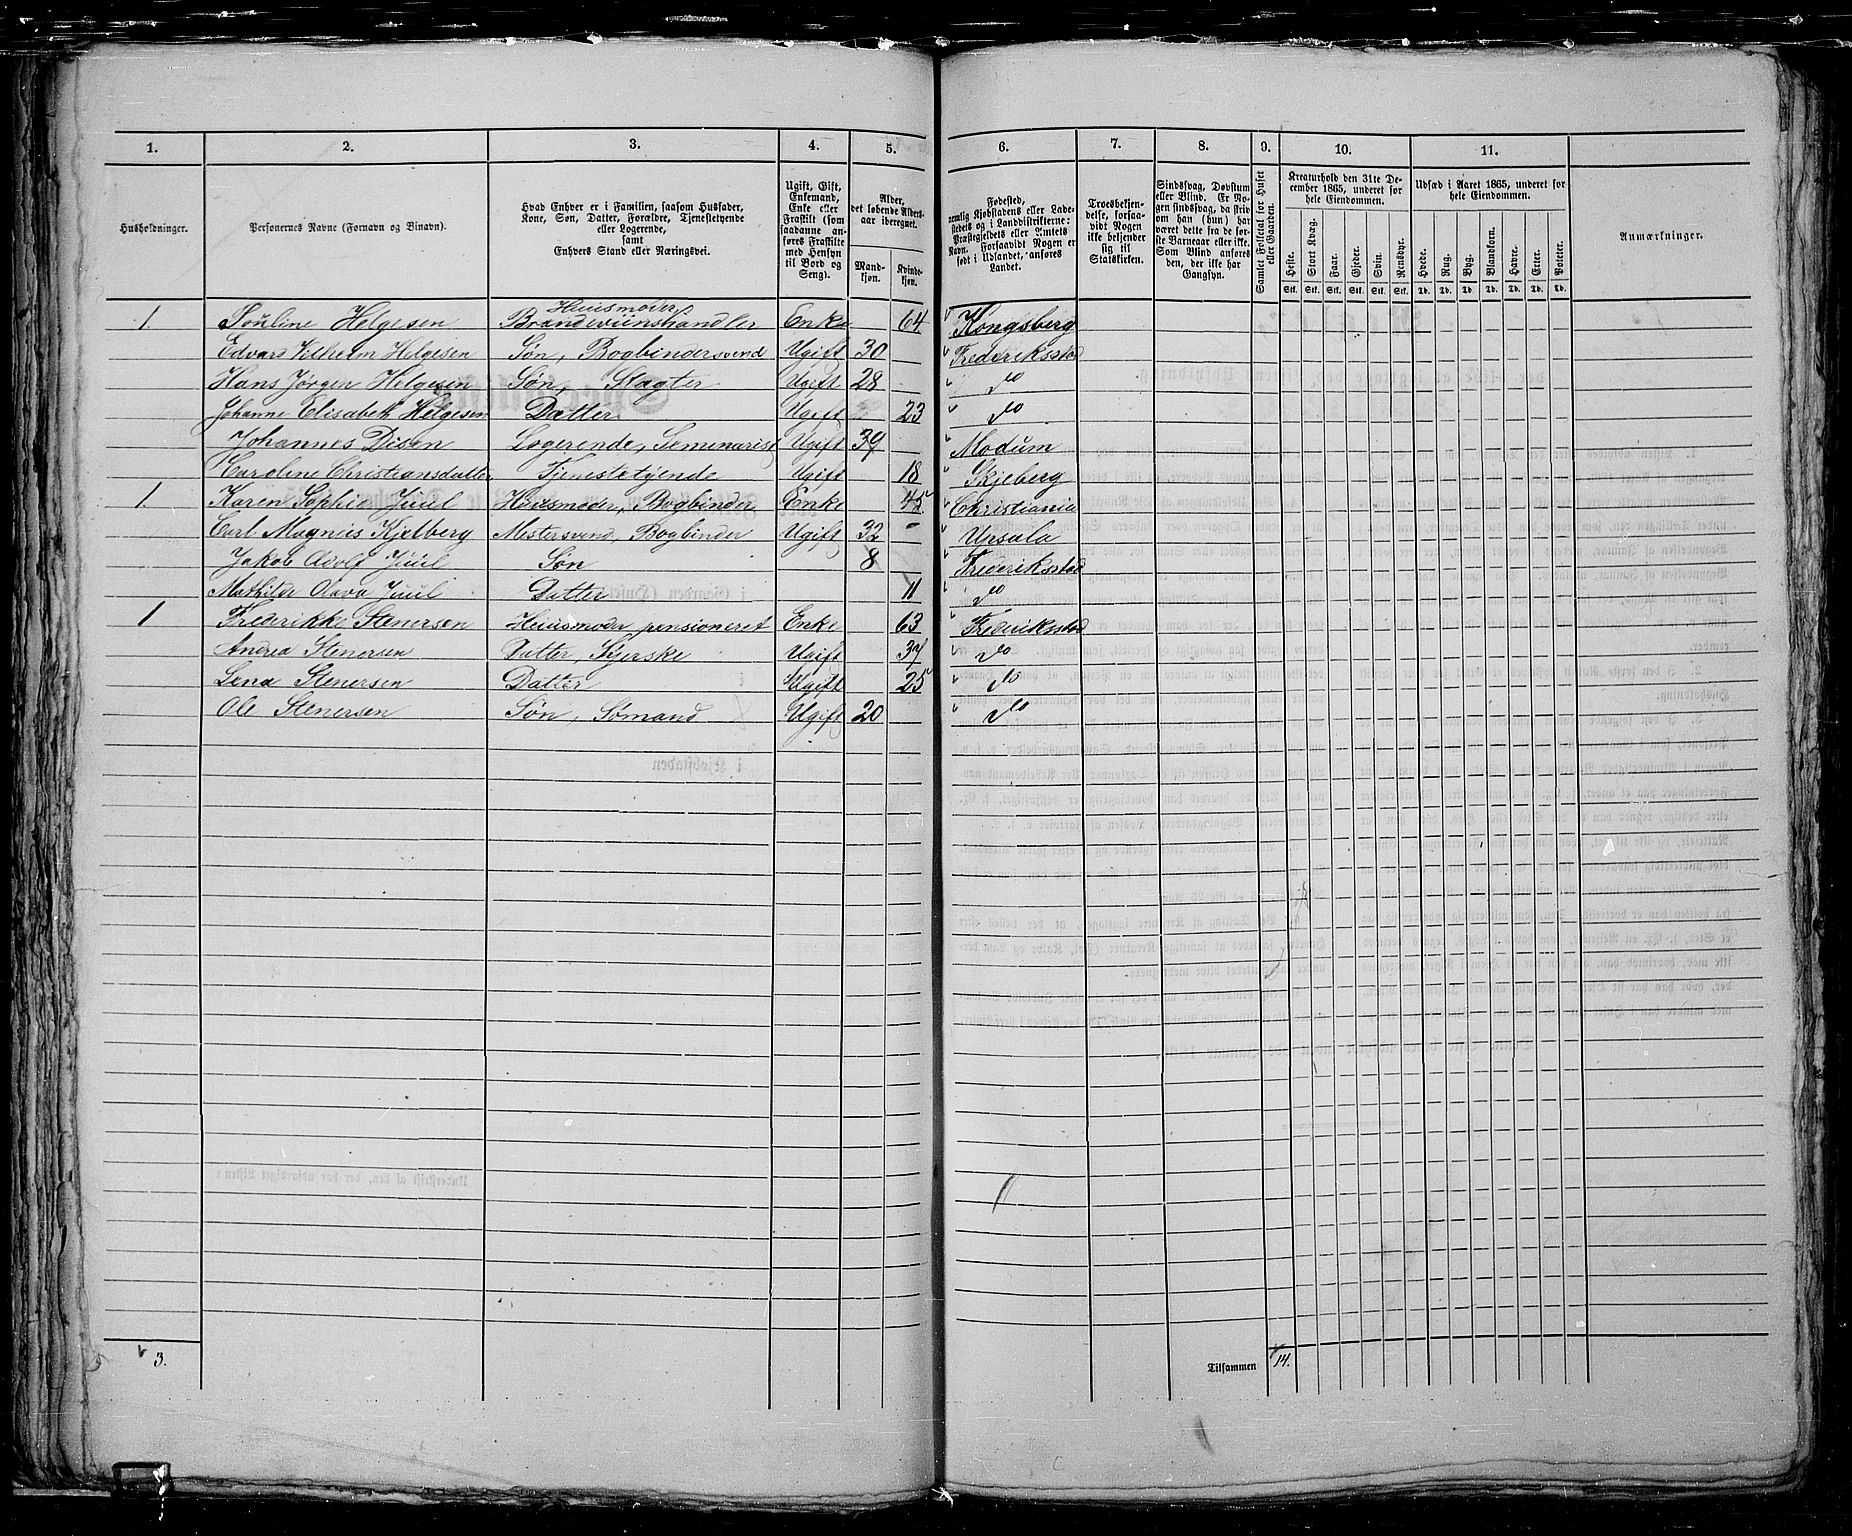 1. 2. 3. 4. 5. 6. 7. 8. 9. 10. 11.
Husholdninger.
Personernes Navne (Fornavn og Binavn).
Hvad Enhver er i Familien, saasom Husfader,
Kone, Søn, Datter, Forældre, Tjenestetyende
eller Logerende,
samt
Enhvers Stand eller Næringsvei.
Ugift, Gift,
Enkemand,
Enke eller
Fraskilt (som
saadanne an-
føres Fraskilte
med Hensyn
til Bord og
Seng).
Alder,
det løbende Alders-
aar iberegnet.
Mand-
kjøn.
Kvinde-
kjøn.
Fødested,
nemlig Kjøbstadens eller Lade-
stedets og i Landdistrikterne:
Præstegjeldets eller Amtets
Navn. Forsaavidt Nogen er
født i Udlandet, anføres
Landet.
Troesbekjen-
delse, forsaa-
vidt Nogen
ikke bekjender
sig til
Statskirken.
Sindssvag, Døvstum
eller Blind. Er No-
gen sindssvag, da skriv
om han (hun) har
været dette fra de før-
ste Barneaar eller ikke.
Som Blind anføres
den, der ikke har
Gangsyn.
Samlet Folketal for Huset
eller Gaarden.
Kreaturhold den 31te De-
cember 1865, underet for
hele Eiendommen.
Heste. Stort Kvæg. Faar. Gjeder. Svin. Rensdyr.
Stk. Stk. Stk. Stk. Stk. Stk.
Udsæd i Aaret 1865, underet for
hele Eiendommen.
Hvede. Rug. Byg. Blandkorn. Havre. Erter. Poteter.
Td. Td. Td. Td. Td. Td. Td.
Anmærkninger.
Huusmoder
1. Pouline Helgesen Brændeviinshandler Enke 64 Kongsberg
Edvard Vilhelm Helgesen Søn, Bogbindersvend Ugift 30 Frederiksstad
Hans Jørgen Helgesen Søn, Slagter Ugift 28 do
Johanne Elisabeth Helgesen Datter Ugift 23 do
Johannes Disen Logerende, Seminarist Ugift 39 Modum
Karoline Christiansdatter Tjenestetyende Ugift 18 Skjeberg
1. Karen Sophie Juul Huusmoder, Bogbinder Enke 45 Christiania
Carl Magnus Kjelberg Mestersvend, Bogbinder Ugift 32 - Upsala
Jakob Adolf Juul Søn 8 Frederiksstad
Mathilde Olava Juul Datter 11 do
1 Frederikke Stenersen Huusmoder pensioneret Enke 63 Frederiksstad
Andrea Stenersen Datter, Syerske Ugift 37 do
Lena Stenersen Datter Ugift 25 do
Ole Stenersen Søn, Sømand Ugift 20 do
3. Tilsammen 14.